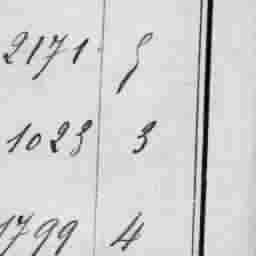 2171 5
1023 3
1799 4